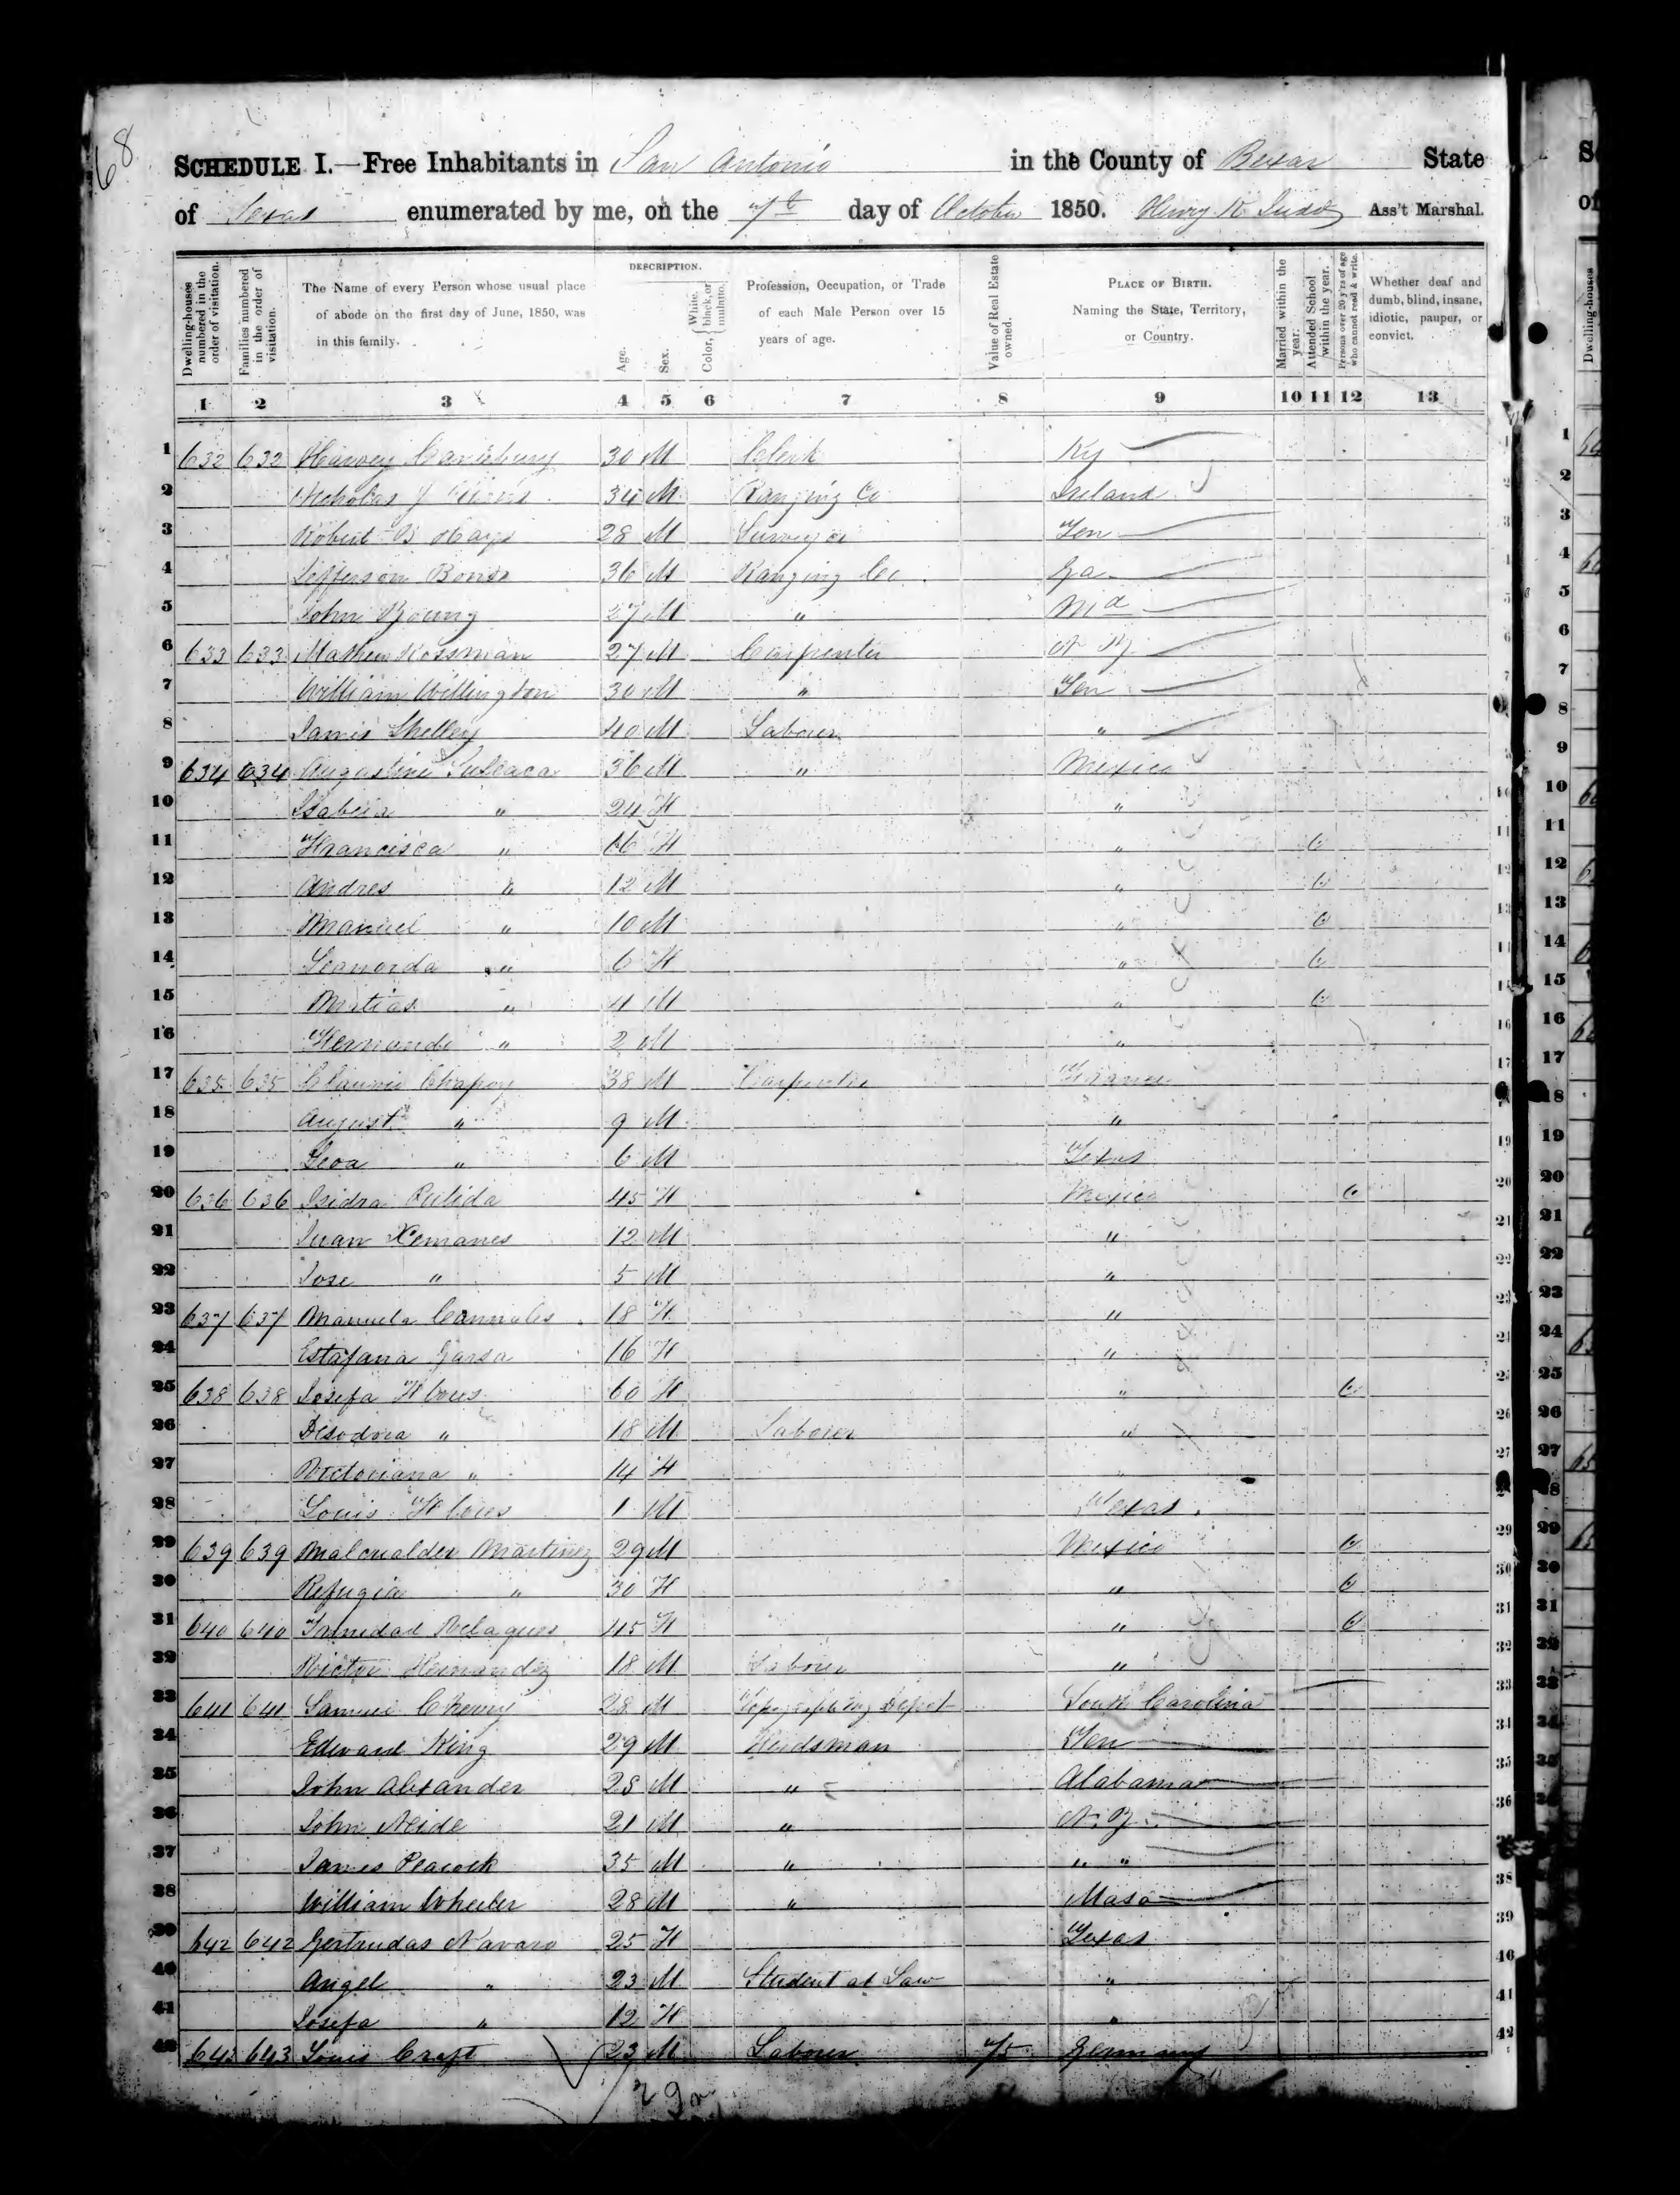 68
SCHEDULE I.—Free Inhabitants in San Antonio in the County of Bexar State
of Texas enumerated by me, on the 7th day of October 1850. Henry K Judd Ass't Marshal.
Dwelling-houses numbered in the order of visitation.
Families numbered in the order of visitation.
The Name of every Person whose usual place of abode on the first day of June, 1850, was in this family.
DESCRIPTION.
Age.
Sex.
Color, White, black, or mulatto.
Profession, Occupation, or Trade of each Male Person over 15 years of age.
Value of Real Estate owned.
PLACE OF BIRTH.
Naming the State, Territory, or Country.
Married within the year.
Attended School within the year.
Persons over 20 y'rs of age who cannot read & write.
Whether deaf and dumb, blind, insane, idiotic, pauper, or convict.
1 2 3 4 5 6 7 8 9 10 11 12 13
1 632 632 Harvey Canterbury 30 M Clerk Ky
2 Nicholas 34 M Ranging Co Ireland
3 Robert B Hays 28 M Surveyor Ten
4 Jefferson Bonds 36 M Ranging Co Ga
5 John Young 27 M " Md
6 633 633 Mathew Rossman 27 M Carpenter N Y
7 William Willington 30 M " Ten
8 James Shelley 40 M Labourer "
9 634 634 Augustine 36 M " Mexico
10 " 24 F "
11 Francisca " 16 F "
12 Andres " 12 M "
13 Manuel " 10 M "
14 Leanorda " 6 F "
15 Matias " 4 M "
16 Fernando " 2 M "
17 635 635 Chapoy 38 M Carpenter France
18 August " 9 M "
19 " 6 M Texas
20 636 636 Isidra Pulida 45 F Mexico
21 Juan Xemanes 12 M "
22 Jose " 5 M "
23 637 637 Manuela Cannales 18 F "
24 Estafana Garsa 16 F "
25 638 638 Josefa Flores 60 F "
26 " 18 M Labourer "
27 Victoriana " 14 F "
28 Louis Flores 1 M Texas
29 639 639 Martinez 29 M Mexico
30 Refugia " 30 F "
31 640 640 Trinidad Velaques 45 F "
32 Victor Hernandez 18 M Labourer "
33 641 641 Samuel Cherry 28 M South Carolina
34 Edward King 29 M Herdsman Ten
35 John Alexander 28 M " Alabama
36 John Neide 21 M " N. Y.
37 James Peacock 35 M " " "
38 William Wheeler 28 M " Mass
39 642 642 Gertrudas Navaro 25 F Texas
40 Angel " 23 M Student at Law "
41 Josefa " 12 F "
42 643 643 Louis Craft 23 M Labourer 75 Germany